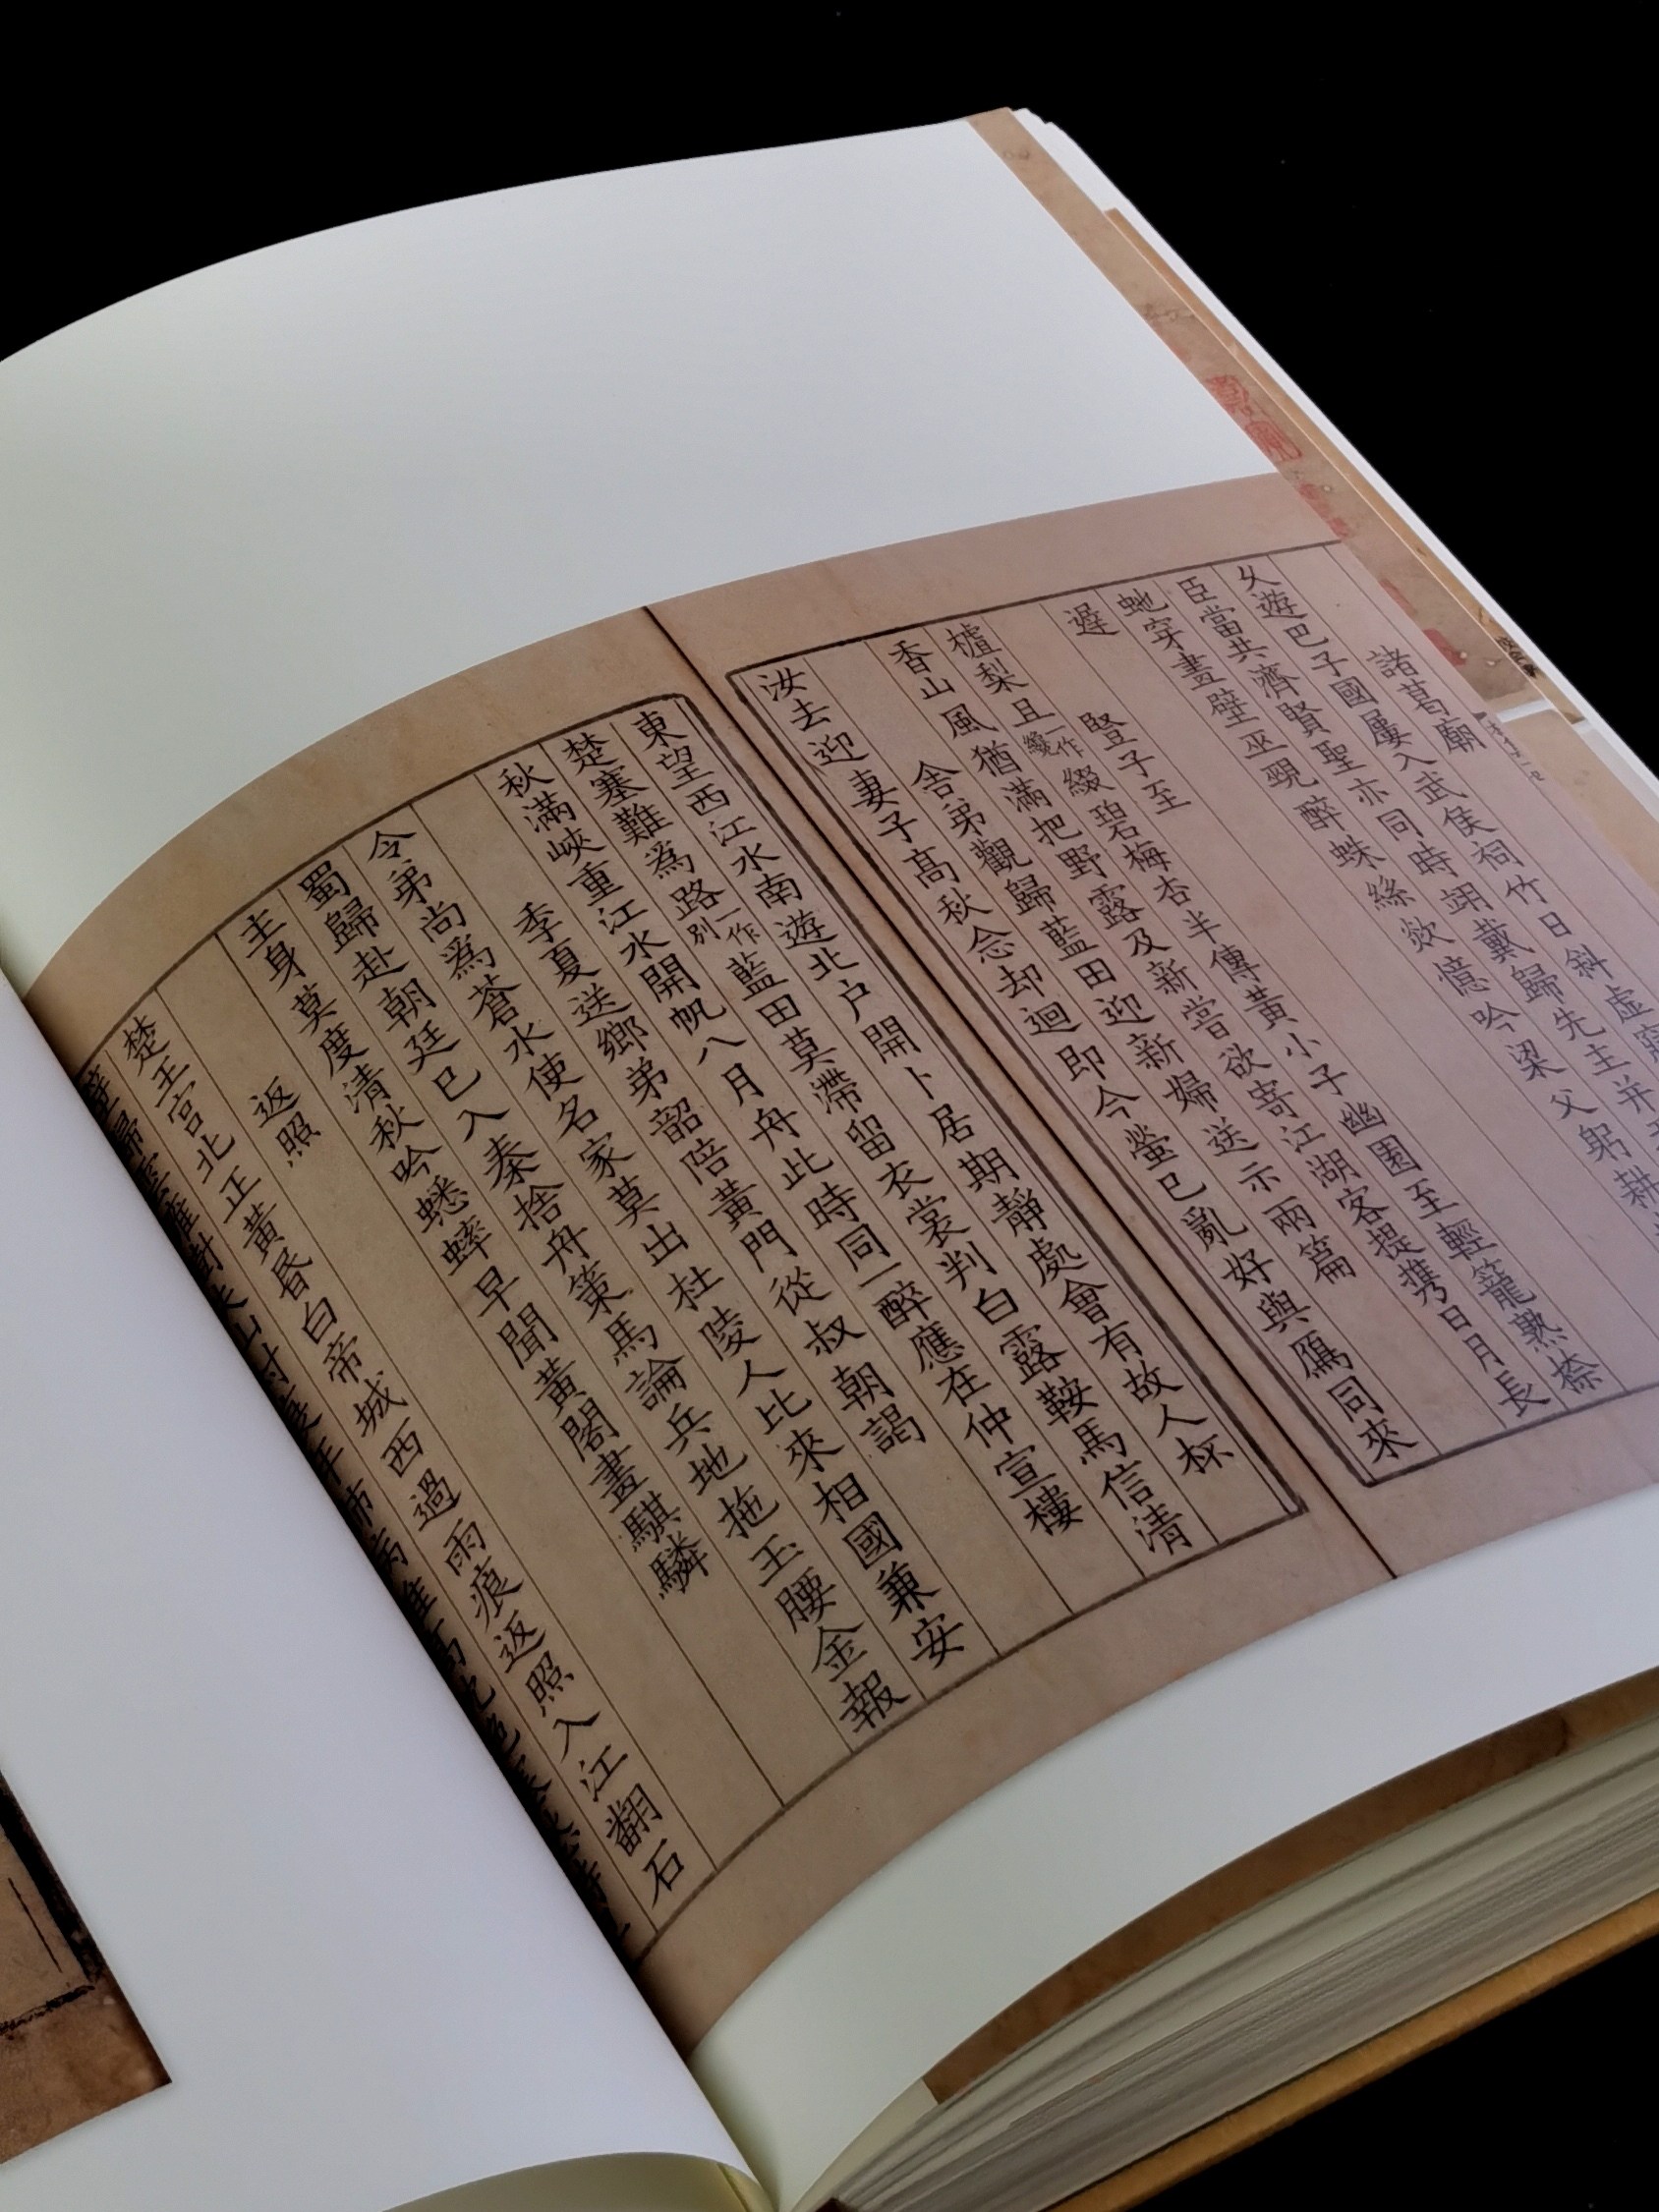 諸葛廟
久遊巴子國屢入武侯祠竹日斜虛
臣當共濟賢聖亦同時翊戴歸先主并
虵穿畫壁巫覡醉蛛絲欻憶吟梁父躬耕
遲
豎子至
樝梨且一作纔綴碧梅杏半傳黃小子幽園至輕籠熟㮈
香山風猶滿把野露及新嘗欲寄江湖客提携日月長
舍弟觀歸藍田迎新婦送示兩篇
汝去迎妻子高秋念却迴即今螢已亂好與鴈同來
東望西江水南遊北户開卜居期靜處會有故人杯
楚塞難爲路一作別藍田莫滯留衣裳判白露鞍馬信清
秋滿峽重江水開帆八月舟此時同一醉應在仲宣樓
季夏送鄉弟韶陪黃門從叔朝謁
令弟尚爲蒼水使名家莫出杜陵人比來相國兼安
蜀歸赴朝廷已入秦捨舟策馬論兵地拖玉腰金報
主身莫度清秋吟蟋蟀早聞黃閣畫騏驎
返照
楚王宮北正黃昏白帝城西過雨痕返照入江翻石